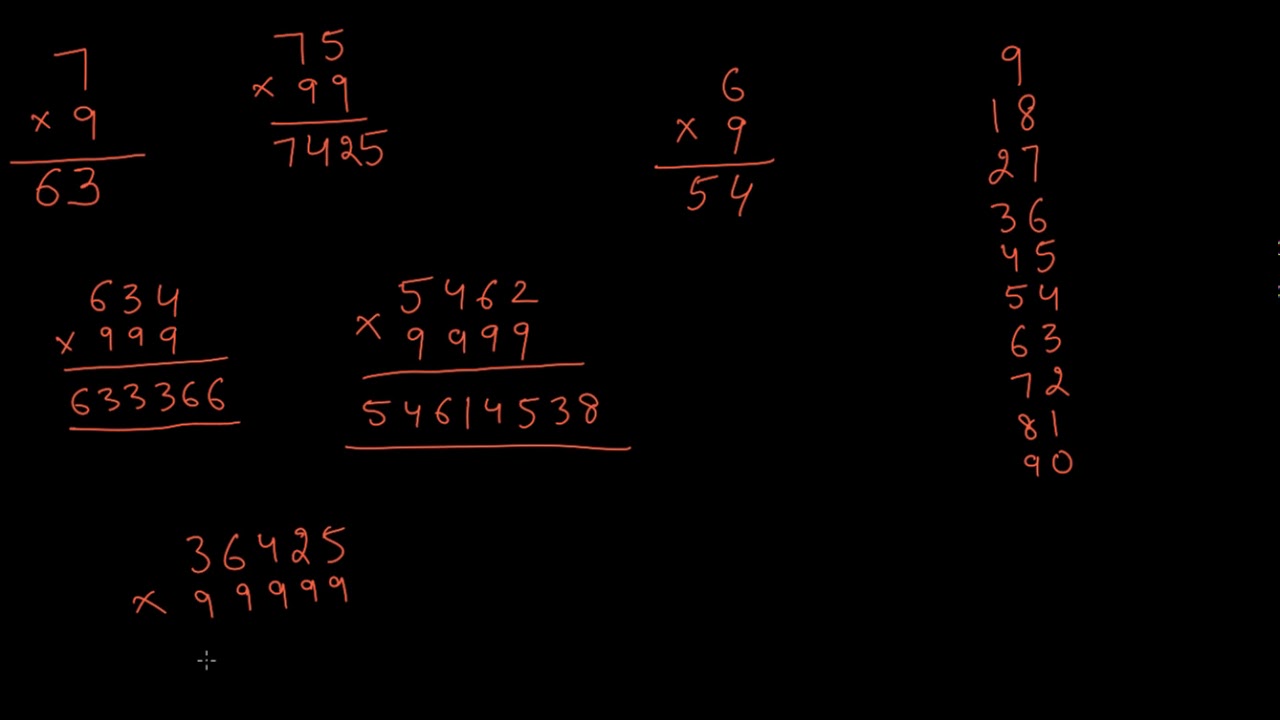 7
× 9
63
75
× 99
7425
6
× 9
54
9
18
27
36
45
54
63
72
81
90
634
× 999
633366
5462
× 9999
54614538
36425
× 99999